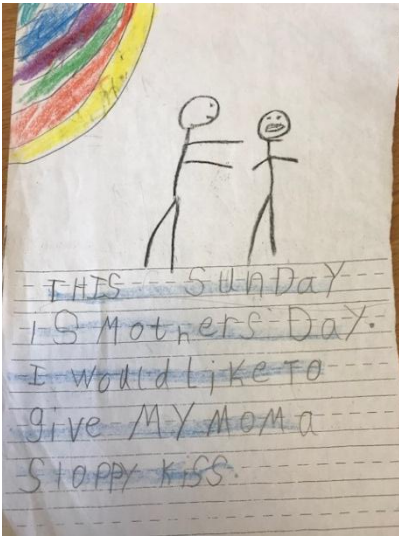 THIS SUnDaY
iS MotherS DaY.
I would like To
give MY MoM a
SloppY KiSS.